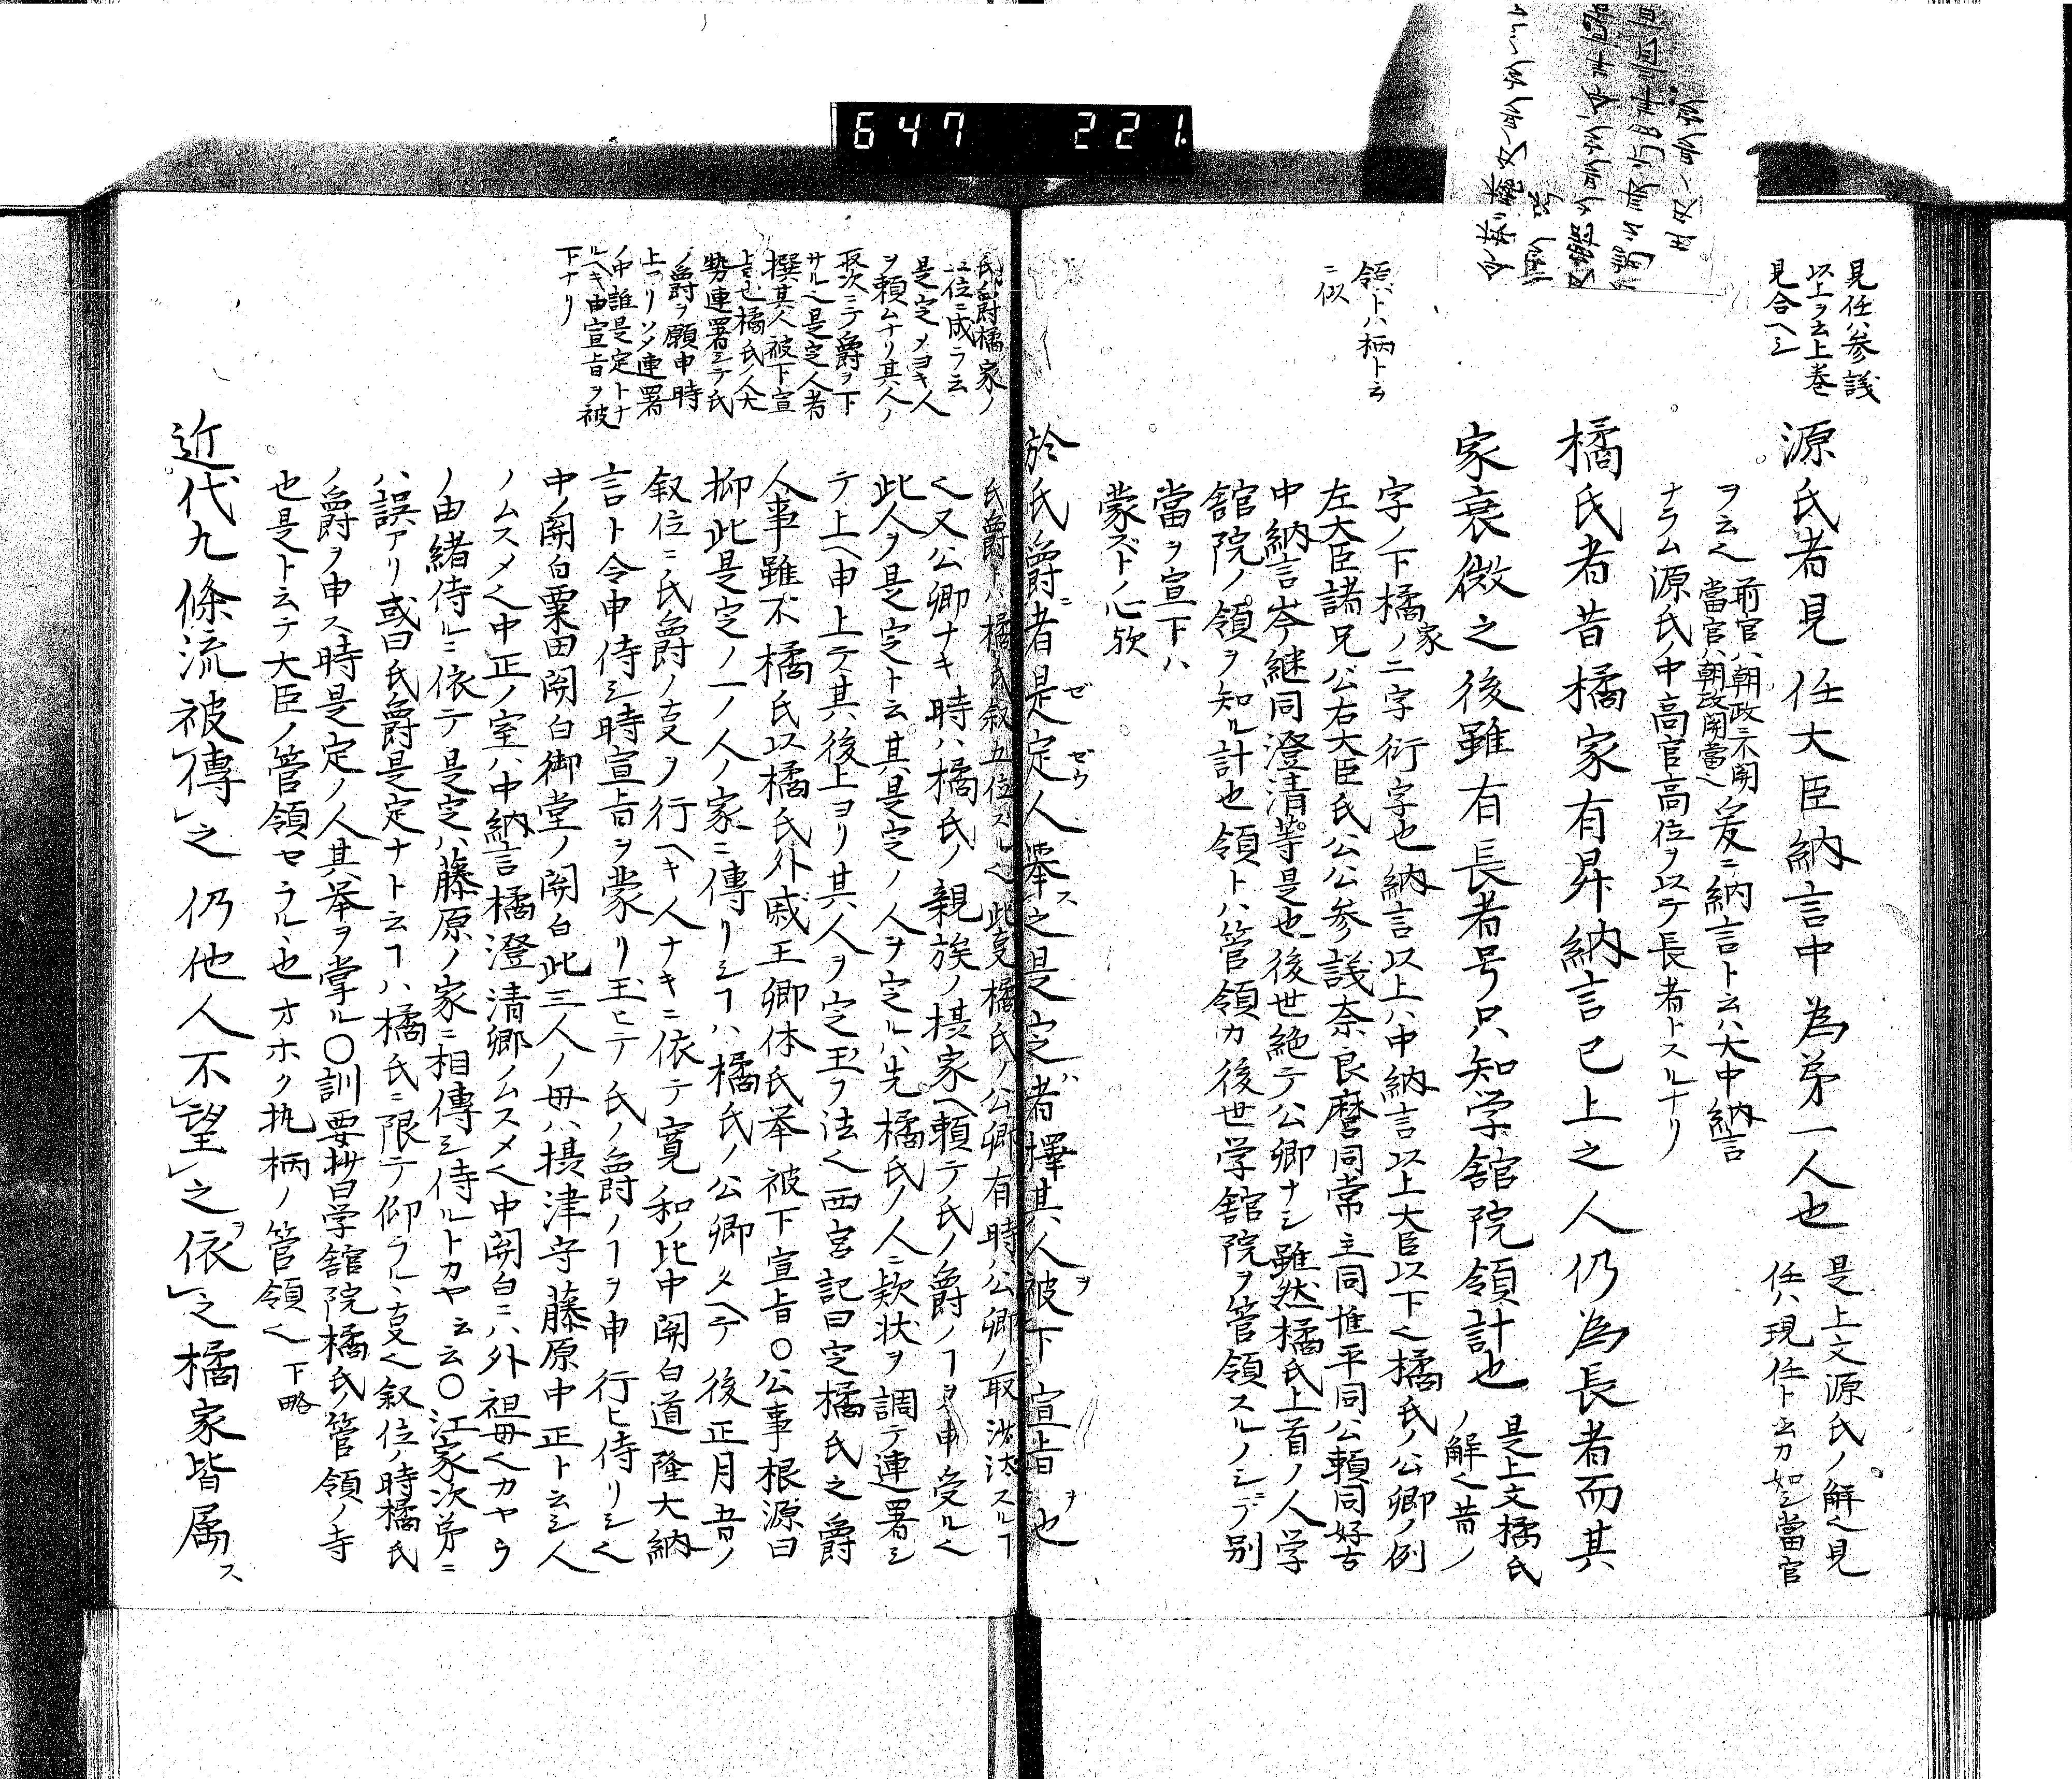 647 221
見任ハ参議
以上ヲ云上巻
見合ヘシ
源氏者見任大臣納言中為第一人也
是上文源氏ノ解也見
任ハ現任ト云カ如シ當官
ヲ云也
前官ハ朝政ニ不関
當官ハ朝政関當也
爰ニ納言ト云ハ大中納言
ナラム源氏ノ中高官高位ヲ以テ長者トスルナリ
橘氏者昔橘家有昇納言已上之人仍為長者而其
家衰微之後雖有長者号只知学舘院領計也
是上文橘氏
ノ解也昔ノ
領ドハ柄ト云
ニ似
字ノ下橘家ノ二字衍字也納言以上ハ中納言以上大臣以下也橘氏ノ公卿ノ例
左大臣諸兄公右大臣氏公公参議奈良麿同常主同惟平同公頼同好古
中納言岑継同澄清等是也後世絶テ公卿ナシ雖然橘氏上首ノ人学
舘院ノ領ヲ知ル計也領トハ管領カ後世学舘院ヲ管領スルノミニテ別
當ヲ宣下ハ
蒙ズトノ心歟
於氏爵者是定人挙之是定者擇其人被下宣旨也
氏爵橘家ノ
二位ニ成ラ云
是定メヨキ人
ヲ頼ムナリ其人ノ
取次ニテ爵ヲ下
サル也是定人者
撰其人被下宣
旨也橘氏ノ人大
勢連署シテ氏
ノ爵ヲ願申時
上ヨリソノ連署
ノ中誰是定トナ
ルヘキ由宣旨ヲ被
下ナリ
氏爵トハ橘氏叙五位スル也此支橘氏ノ公卿有時ハ公卿ノ取沙汰スルヿ
也又公卿ナキ時ハ橘氏ノ親族ノ摂家ヘ頼テ氏ノ爵ノヿヲ申受ル也
此人ヲ是定ト云其是定ノ人ヲ定ルハ先橘氏ノ人ニ款状ヲ調テ連署シ
テ上ヘ申上テ其後上ヨリ其人ヲ定玉フ法也西宮記曰定橘氏之爵
人事雖不橘氏以橘氏外戚王卿依氏挙被下宣旨〇公事根源曰
抑此是定ノ一ノ人ノ家ニ傳リシヿハ橘氏ノ公卿タヘテ後正月五日ノ
叙位ニノ氏爵ノ支ヲ行ヘキ人ナキニ依テ寛和ノ比中関白道隆大納
言ト令申侍シ時宣旨ヲ蒙リ玉ヒテ氏ノ爵ノヿヲ申行ヒ侍リシ也
中ノ関白粟田関白御堂ノ関白此三人ノ母ハ摂津守藤原中正ト云シ人
ノムスメ也中正ノ室ハ中納言橘澄清卿ノムスメ也中関白ニハ外祖母也カヤウ
ノ由緒侍ルニ依テ是定ハ藤原ノ家ニ相傳シ侍ルトカヤ云云〇江家次第ニ
ハ誤アリ或曰氏爵是定ナト云ヿハ橘氏ニ限テ仰ラル、支也叙位ノ時橘氏
ノ爵ヲ申ス時是定ノ人其挙ヲ掌ル〇訓要抄曰学舘院橘氏ノ管領ノ寺
也是ト云テ大臣ノ管領セラル、也オホク執柄ノ管領也下略
近代九條流被傳之仍他人不望之依之橘家皆属ス